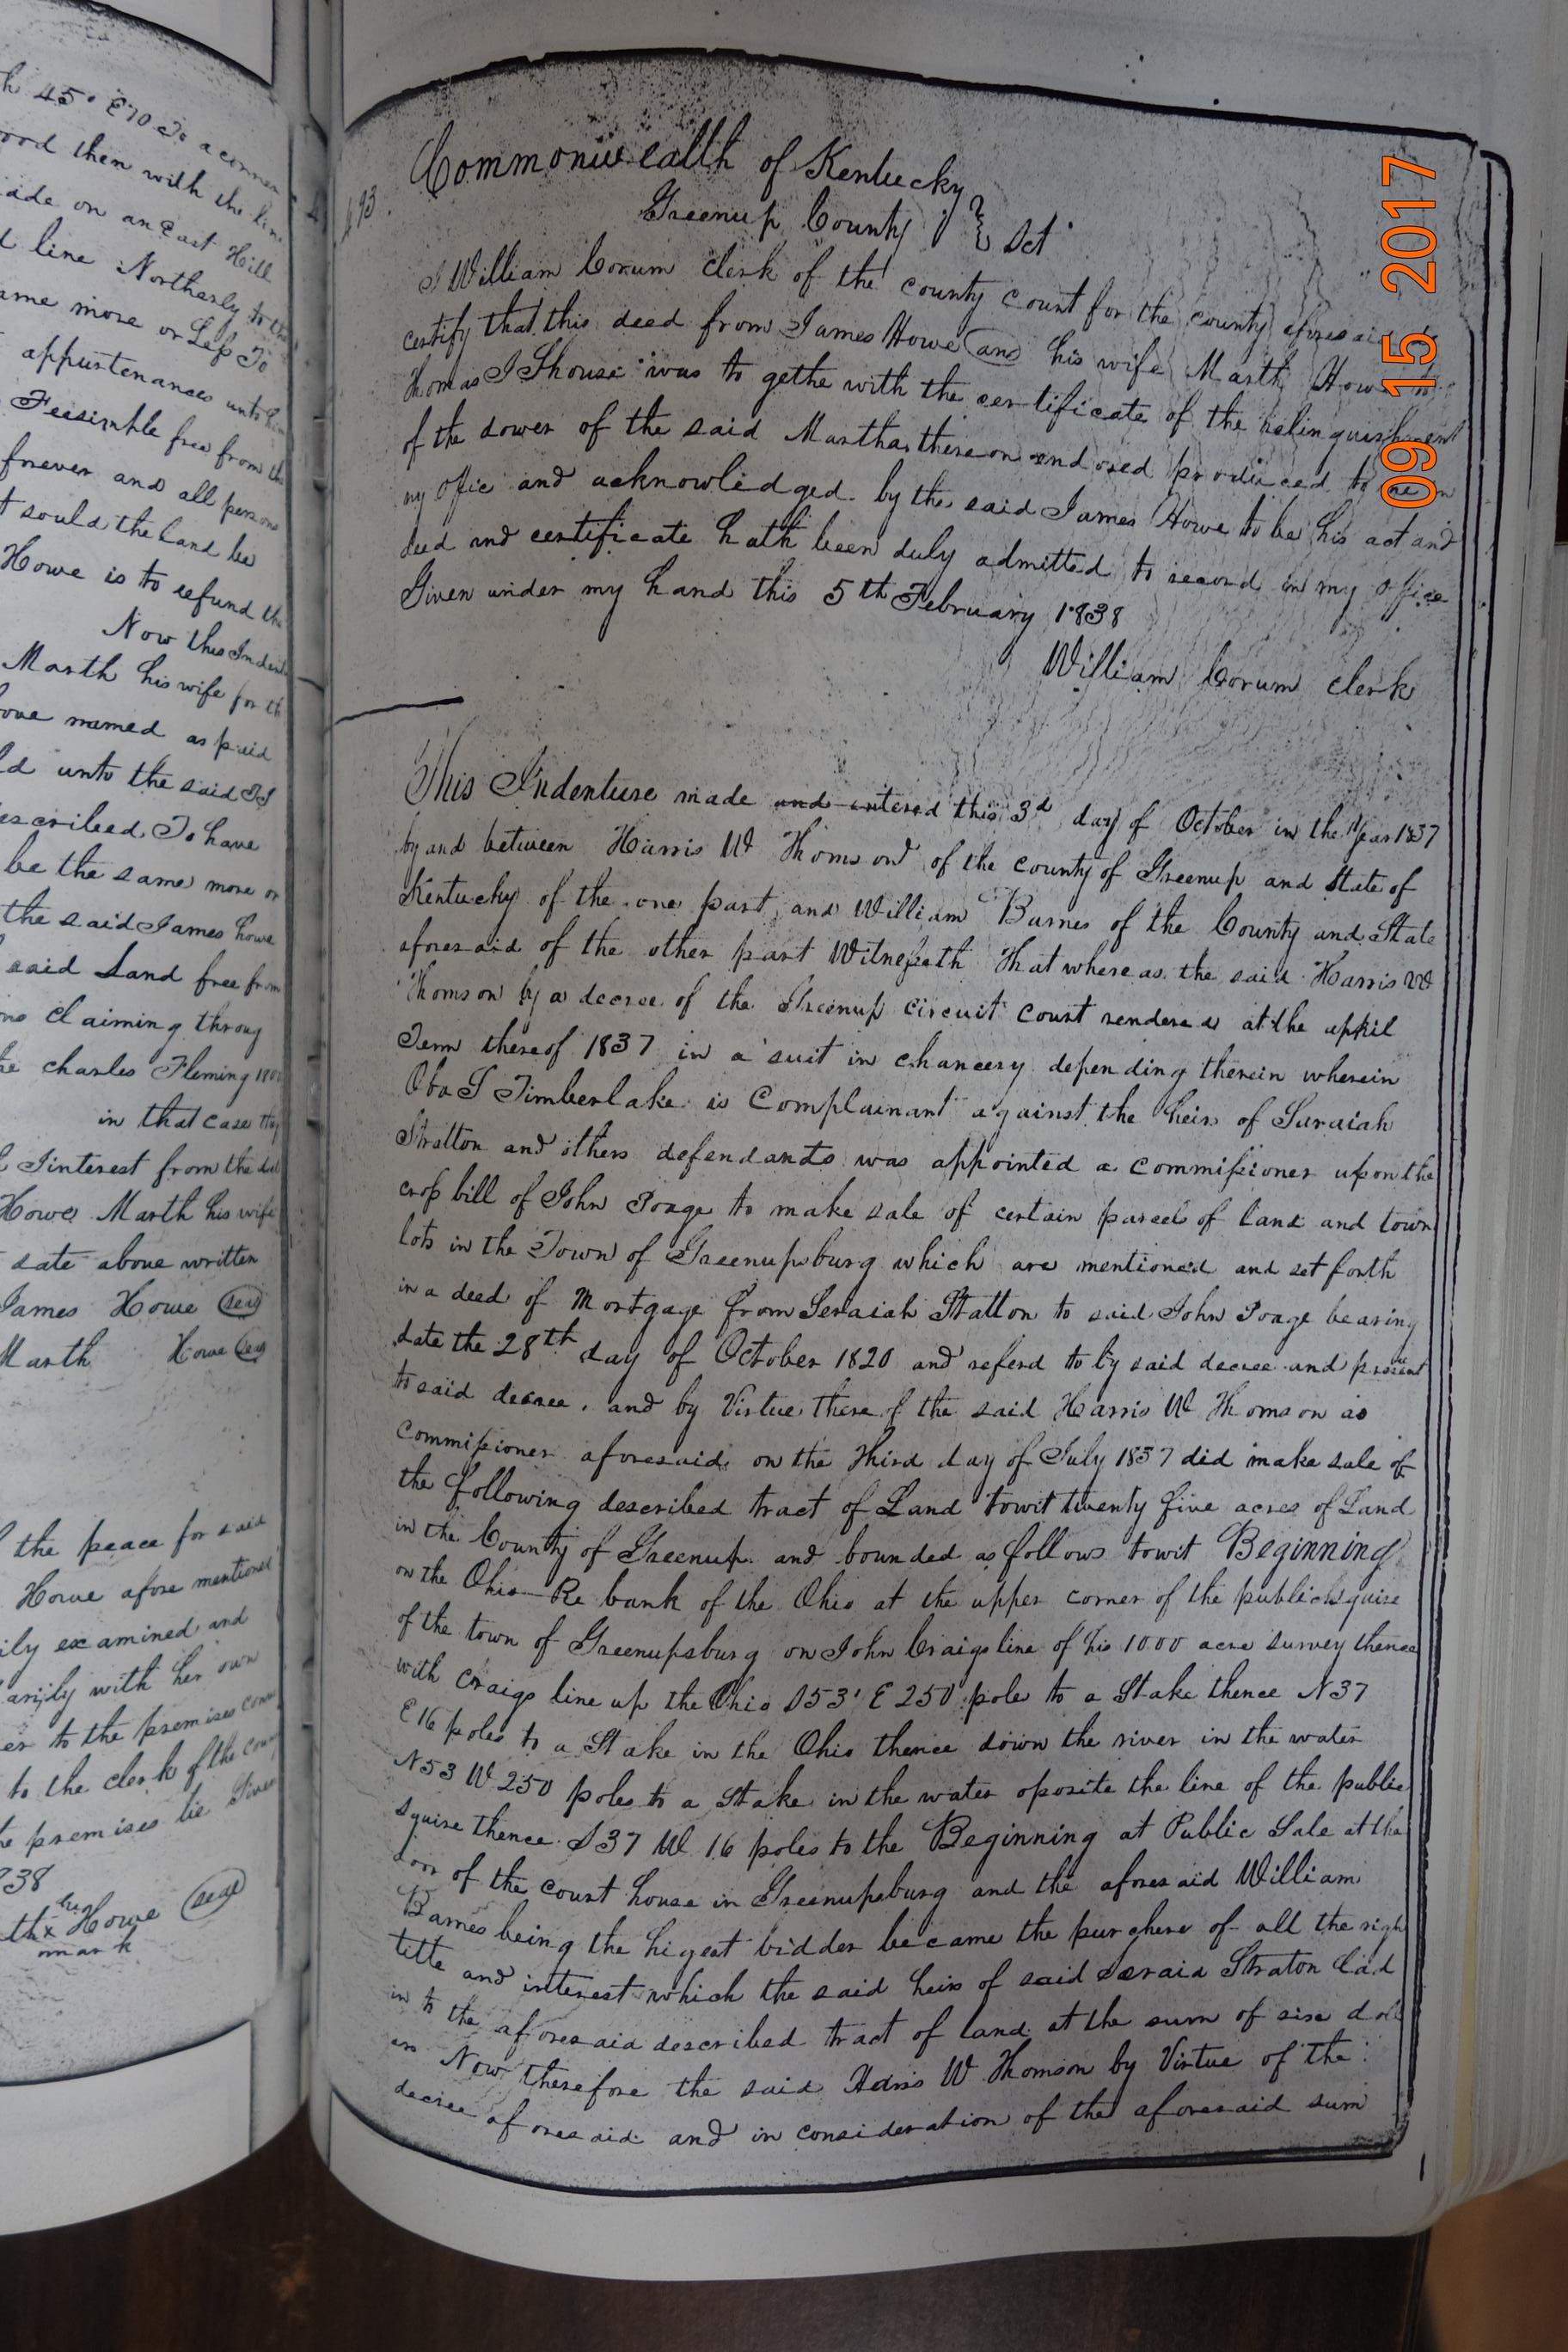 h 45° E 70 To a corner
ood then with the line
ade on an East Hill
d line Northerly to the
ame more or Less To
appurtenances unto him
Feesimple free from the
forever and all persons
t sould the land be
Howe is to refund the
Now this Inden
Marth his wife for th
ove named as paid
ld unto the said TJ
escribeed To have
be the same more or
the said James howe
said Land free from
ons claiming throug
he charles Fleming
in that case they
& Iinterest from the dat
Howe Marth his wife
date above written
James Howe (seal)
Marth Howe (seal)
the peace for said
Howe afore mentioned
ily examined and
arijly with her own
er to the premises
to the clerk of the coun
he premises be Given
38
her
th x Howe (seal)
mark
493.
Commonwealth of Kentucky
Greenup County } Sct
I William Corum clerk of the county court for the county aforesaid
certify that this deed from James Howe and his wife Marth Howe to
Thomas I Shouse was to gethe with the certificate of the relinquishment
of the dower of the said Martha thereon endosed produced to me in
my offic and acknowledged by the said James Howe to be his act and
deed and certificate hath been duly admitted to record in my office
Given under my hand this 5th February 1838
William Corum clerk
This Indenture made and entered this 3d day of October in the year 1837
by and between Harris W Thomson of the county of Greenup and State of
Kentucky of the one part and William Barnes of the County and State
aforesaid of the other part Witnesseth That where as the said Harris W
Thomson by a decree of the Greenup circuit court rendered at the april
Term thereof 1837 in a suit in chancery depending therein wherein
Oba T Timberlake is Complainant against the heirs of Saraiah
Stratton and others defendants was appointed a commissioner upon the
cross bill of John Poage to make sale of certain parcels of land and town
lots in the Town of Greenupsburg which are mentioned and set forth
in a deed of Mortgage from Seraiah Statton to said John Poage bearing
date the 28th day of October 1820 and referd to by said decree and
to said decree, and by Virtue there of the said Harris W Thomson as
commissioner aforesaid on the third day of July 1837 did make sale of
the following described tract of Land towit twenty five acres of Land
in the County of Greenup and bounded as follows towit Beginning
on the Ohio Re bank of the Ohio at the upper corner of the publick squire
of the town of Greenupsburg on John Craigs line of his 1000 acre survey thence
with Craigs line up the Ohio S53 E 250 pole to a Stake thence N37
E 16 poles to a Stake in the Ohio thence down the river in the water
N53 W 250 poles to a Stake in the water oposite the line of the public
squire thence S37 W 16 poles to the Beginning at Public Sale at the
door of the court house in Greenupsburg and the aforesaid William
Barnes being the higest bidder became the purchere of all the righ
title and interest which the said heirs of said Seraia Straton had
in to the aforesaid described tract of land at the sum of sixe doll
ars Now therefore the said Harris W Thomson by Virtue of the
decree aforesaid and in consideration of the aforesaid sum
09 15 2017